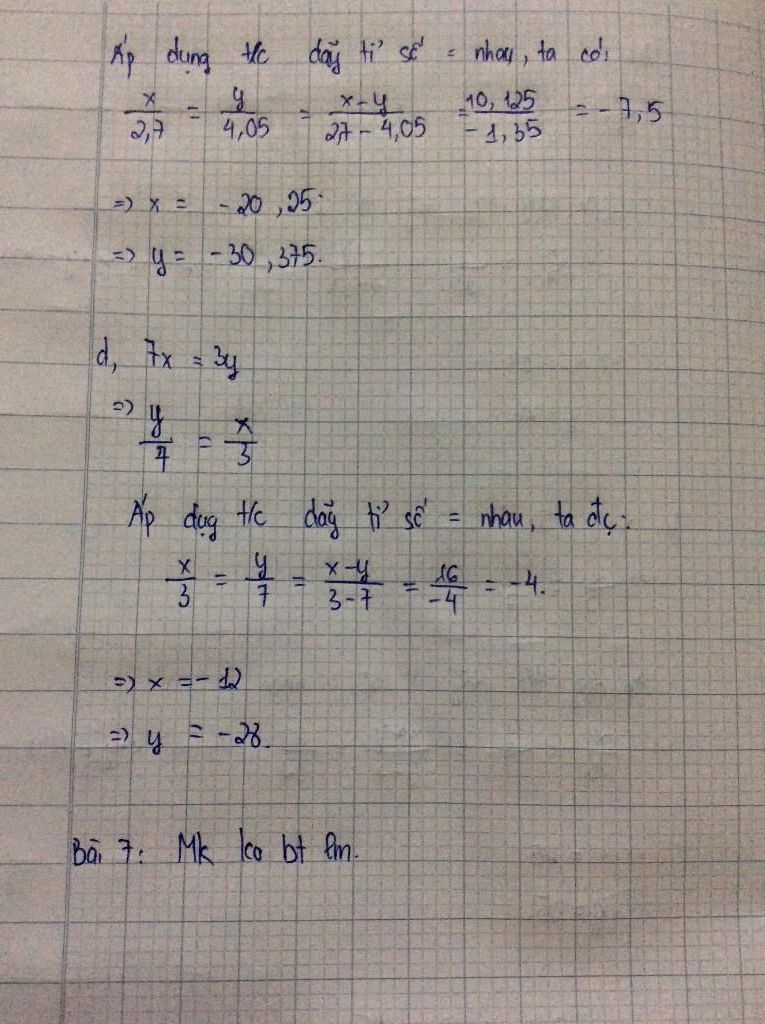 Áp dụng t/c dãy tỉ số = nhau, ta có:
x/2,7 = y/4,05 = x-y/2,7-4,05 = 10,125/-1,35 = -7,5
=> x = -20,25.
=> y = -30,375.
d, 7x = 3y
=> y/7 = x/3
Áp dụg t/c dãy tỉ số = nhau, ta đc:
x/3 = y/7 = x-y/3-7 = 16/-4 = -4.
=> x = -12
=> y = -28.
Bài 7: Mk ko bt lm.